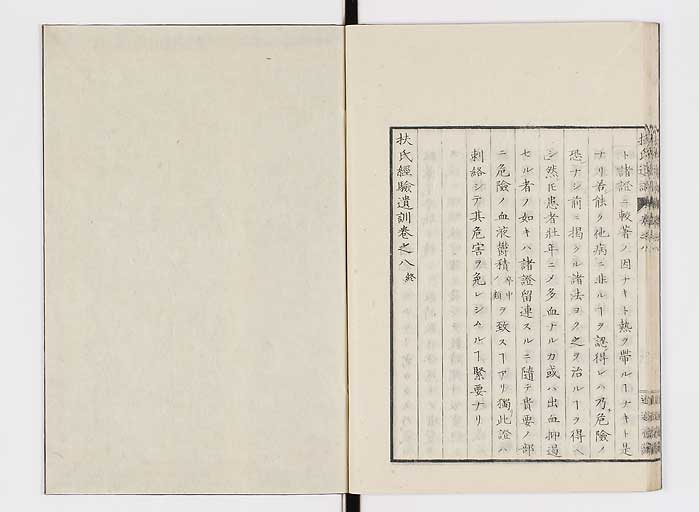 ト諸證ニ較著ノ因ナキト熱ヲ帶ルヿナキト是
ナリ若能ク他病ニ非ルヿヲ認得レハ乃危險ノ
恐ナシ前ニ掲クル諸法ヨク之ヲ治ルヿヲ得ヘ
シ然𪜈患者壯年ニメ多血ナルカ或ハ出血抑遏
セル者ノ如キハ諸證留連スルニ隨テ貴要ノ部
ニ危險ノ血液鬱積卒中ノ類ヲ致スヿアリ獨此證ハ
刺絡シテ其危害ヲ免レシムルヿ緊要ナリ
扶氏經驗遺訓卷之八終